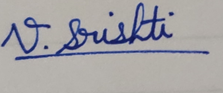 N. Srishti